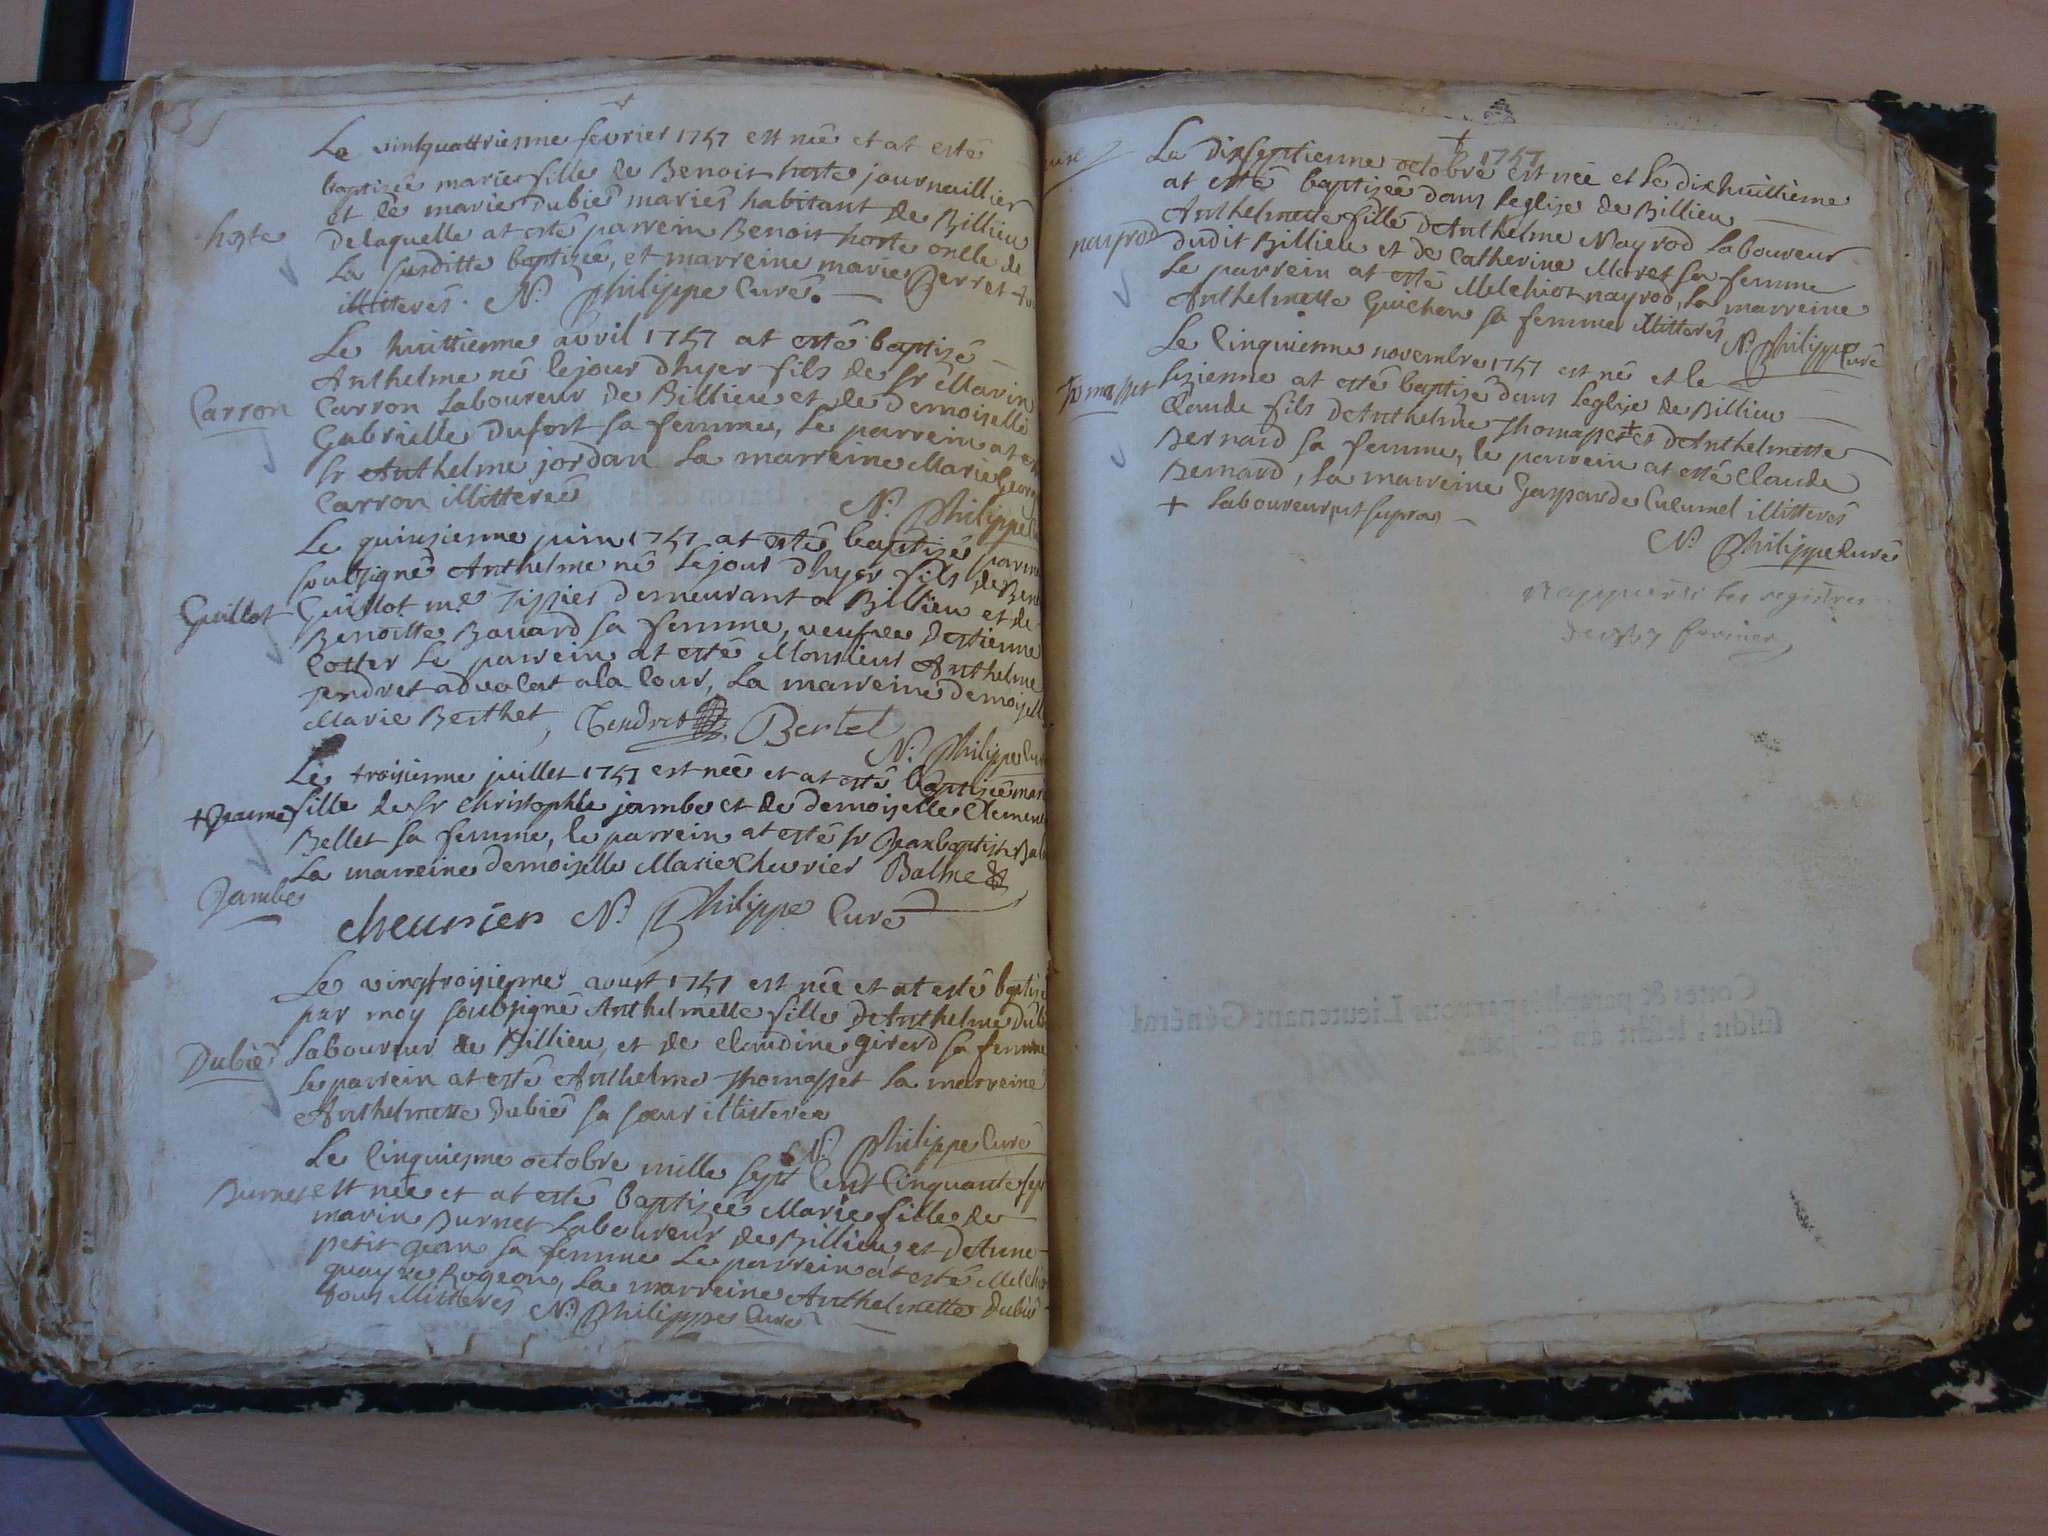 Le vintquattrienne fevrier 1757 est née et at esté
baptizée marie fille de Benoit hoste journaillier
et de marie Dubié mariés habitant de Billieu
hoste
delaquelle at esté parrein Benoit hoste oncle de
la susditte baptizée, et marreine marie Perret
illitterés. N. Philippe Curé.
Le huittienne avril 1757 at esté baptizé
Anthelme né lejour dhyer fils de Sr Marin
Carron
Carron Laboureur de Billieu et de demoiselle
Gabrielle Dufort sa femme, Le parrein at
Sr Anthelme jordan La marreine Marie
Carron illitterée
N. Philippe
Le quinzienne juin 1757 at esté baptizé
soubsigné Anthelme né Lejour dhyer fils de
Guillot
Guillot me Tissier demeurant a Billieu et de
Benoitte Bavard sa femme, veufve destienne
Cotter Le parrein at esté Monsieur Anthelme
Tendret advocat ala Cour, La marreine demoiselle
Marie Berthet, Tendret Bertet
N. Philippe Curé
Le troisienne juillet 1757 est née et at esté baptizée
+ Jeanne
fille de Sr Christophle jambe et de demoiselle
Bellet sa femme, le parrein at esté Sr Jeanbaptiste
La marreine demoiselle Marie Chevrier Balme
Jambe
cheurier N. Philippe Curé
Le vingtroisienne aoust 1757 est née et at esté
par moy soubsigné Anthelmette fille deAnthelme
Dubié
Laboureur de Billieu, et de claudine girerd sa femme
Le parrein at esté Anthelme Thomasset La marreine
Anthelmette Dubié sa sœur illitterée
N. Philippe Curé
Le Cinquienne octobre mille sept Cent Cinquante sept
Burnet
est née et at esté baptizée Marie fille de
marin Burnet Laboureur de Billieu, et deAnne
petit Jean sa femme Le parrein at esté
Rogeon, La marreine Anthelmette Dubié
tous illitterés N. Philippe Curé
Le dixseptienne octobre 1757 est née et le dixhuittienne
at esté baptizée dans leglise de Billieu
Anthelmette fille deAnthelme Nayrod Laboureur
nayrod
dudit Billieu et de Catherine Moret sa femme
Le parrein at esté Melchiot nayrod, La marreine
Anthelmette Guichon sa femme illitterés
N. Philippe Curé
Le Cinquienne novembre 1757 est né et le
Tomasset
sizienne at esté baptizé dans leglise de Billieu
Claude fils deAnthelme Thomasset + et deAnthelmette
Bernard sa femme, le parrein at esté Claude
Bernard, La marreine Gasparde Cucumel illitterés
+ Laboureur, ut supra
N. Philippe Curé